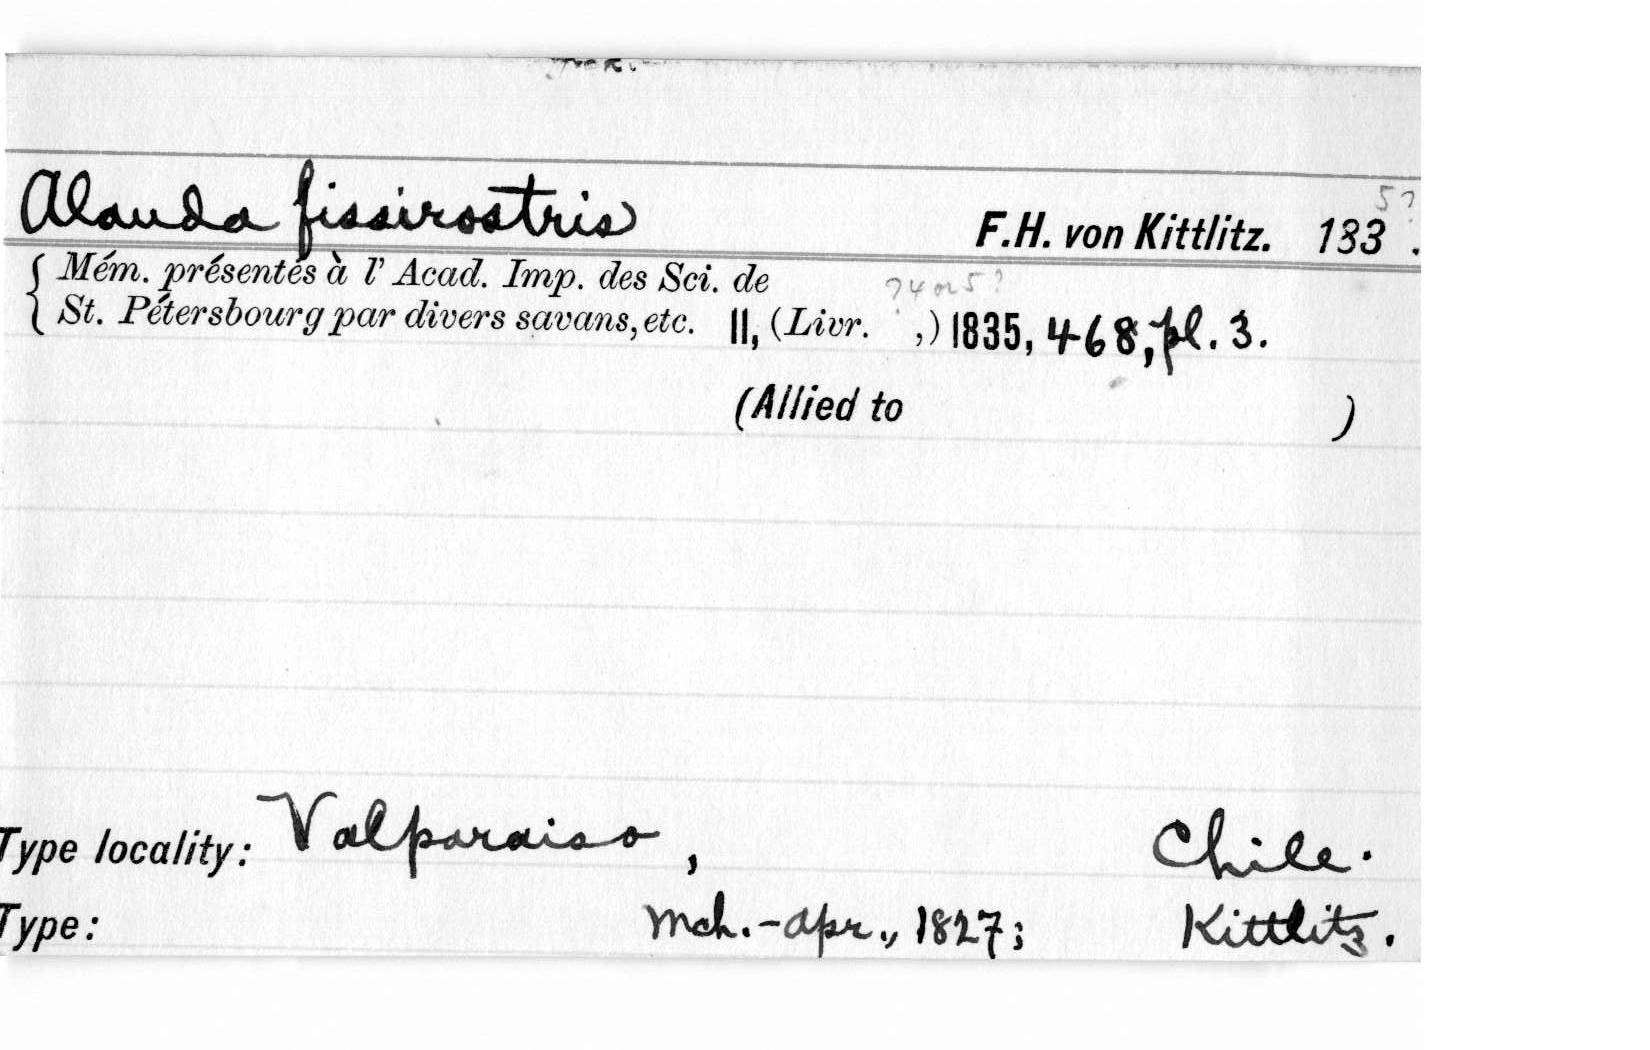 Alauda fissirostris F.H. von Kittlitz. 1835?.
Mém. présentés à l' Acad. Imp. des Sci. de
St. Pétersbourg par divers savans, etc. II, (Livr. ?4 or 5? ,) 1835, 468, pl. 3.
(Allied to )
Type locality: Valparaiso, Chile.
Type: Mch.-Apr., 1827; Kittlitz.